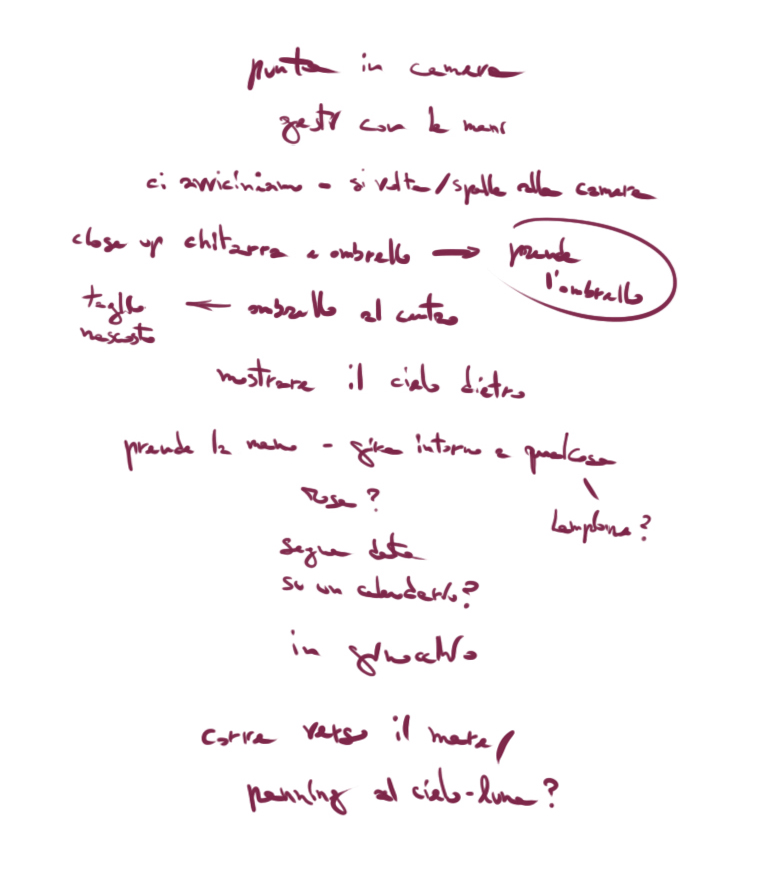 punta in camera
gesti con le mani
ci avviciniamo - si volta/spalle alla camera
close up chitarra e ombrello → prende l'ombrello
taglio nascosto ← ombrello al centro
mostrare il cielo dietro
prende la mano - gira intorno a qualcosa
rosa?
lampione?
segna data
su un calendario?
in ginocchio
corre verso il mare/
panning al cielo-luna?